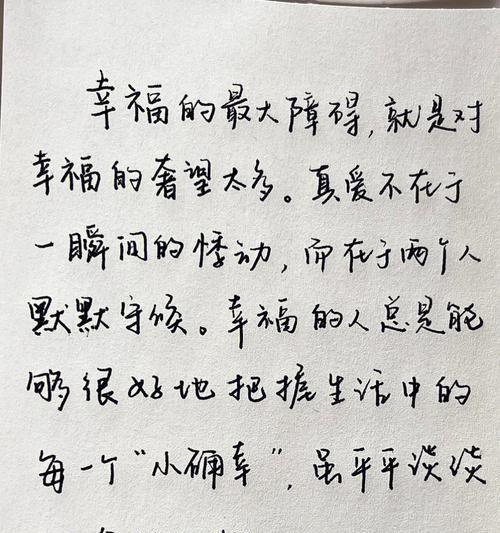 幸福的最大障碍，就是对
幸福的奢望太多。真爱不在于
一瞬间的悸动，而在于两个人
默默守候。幸福的人总是能
够很好地把握生活中的
每一个“小确幸”，虽平平淡淡